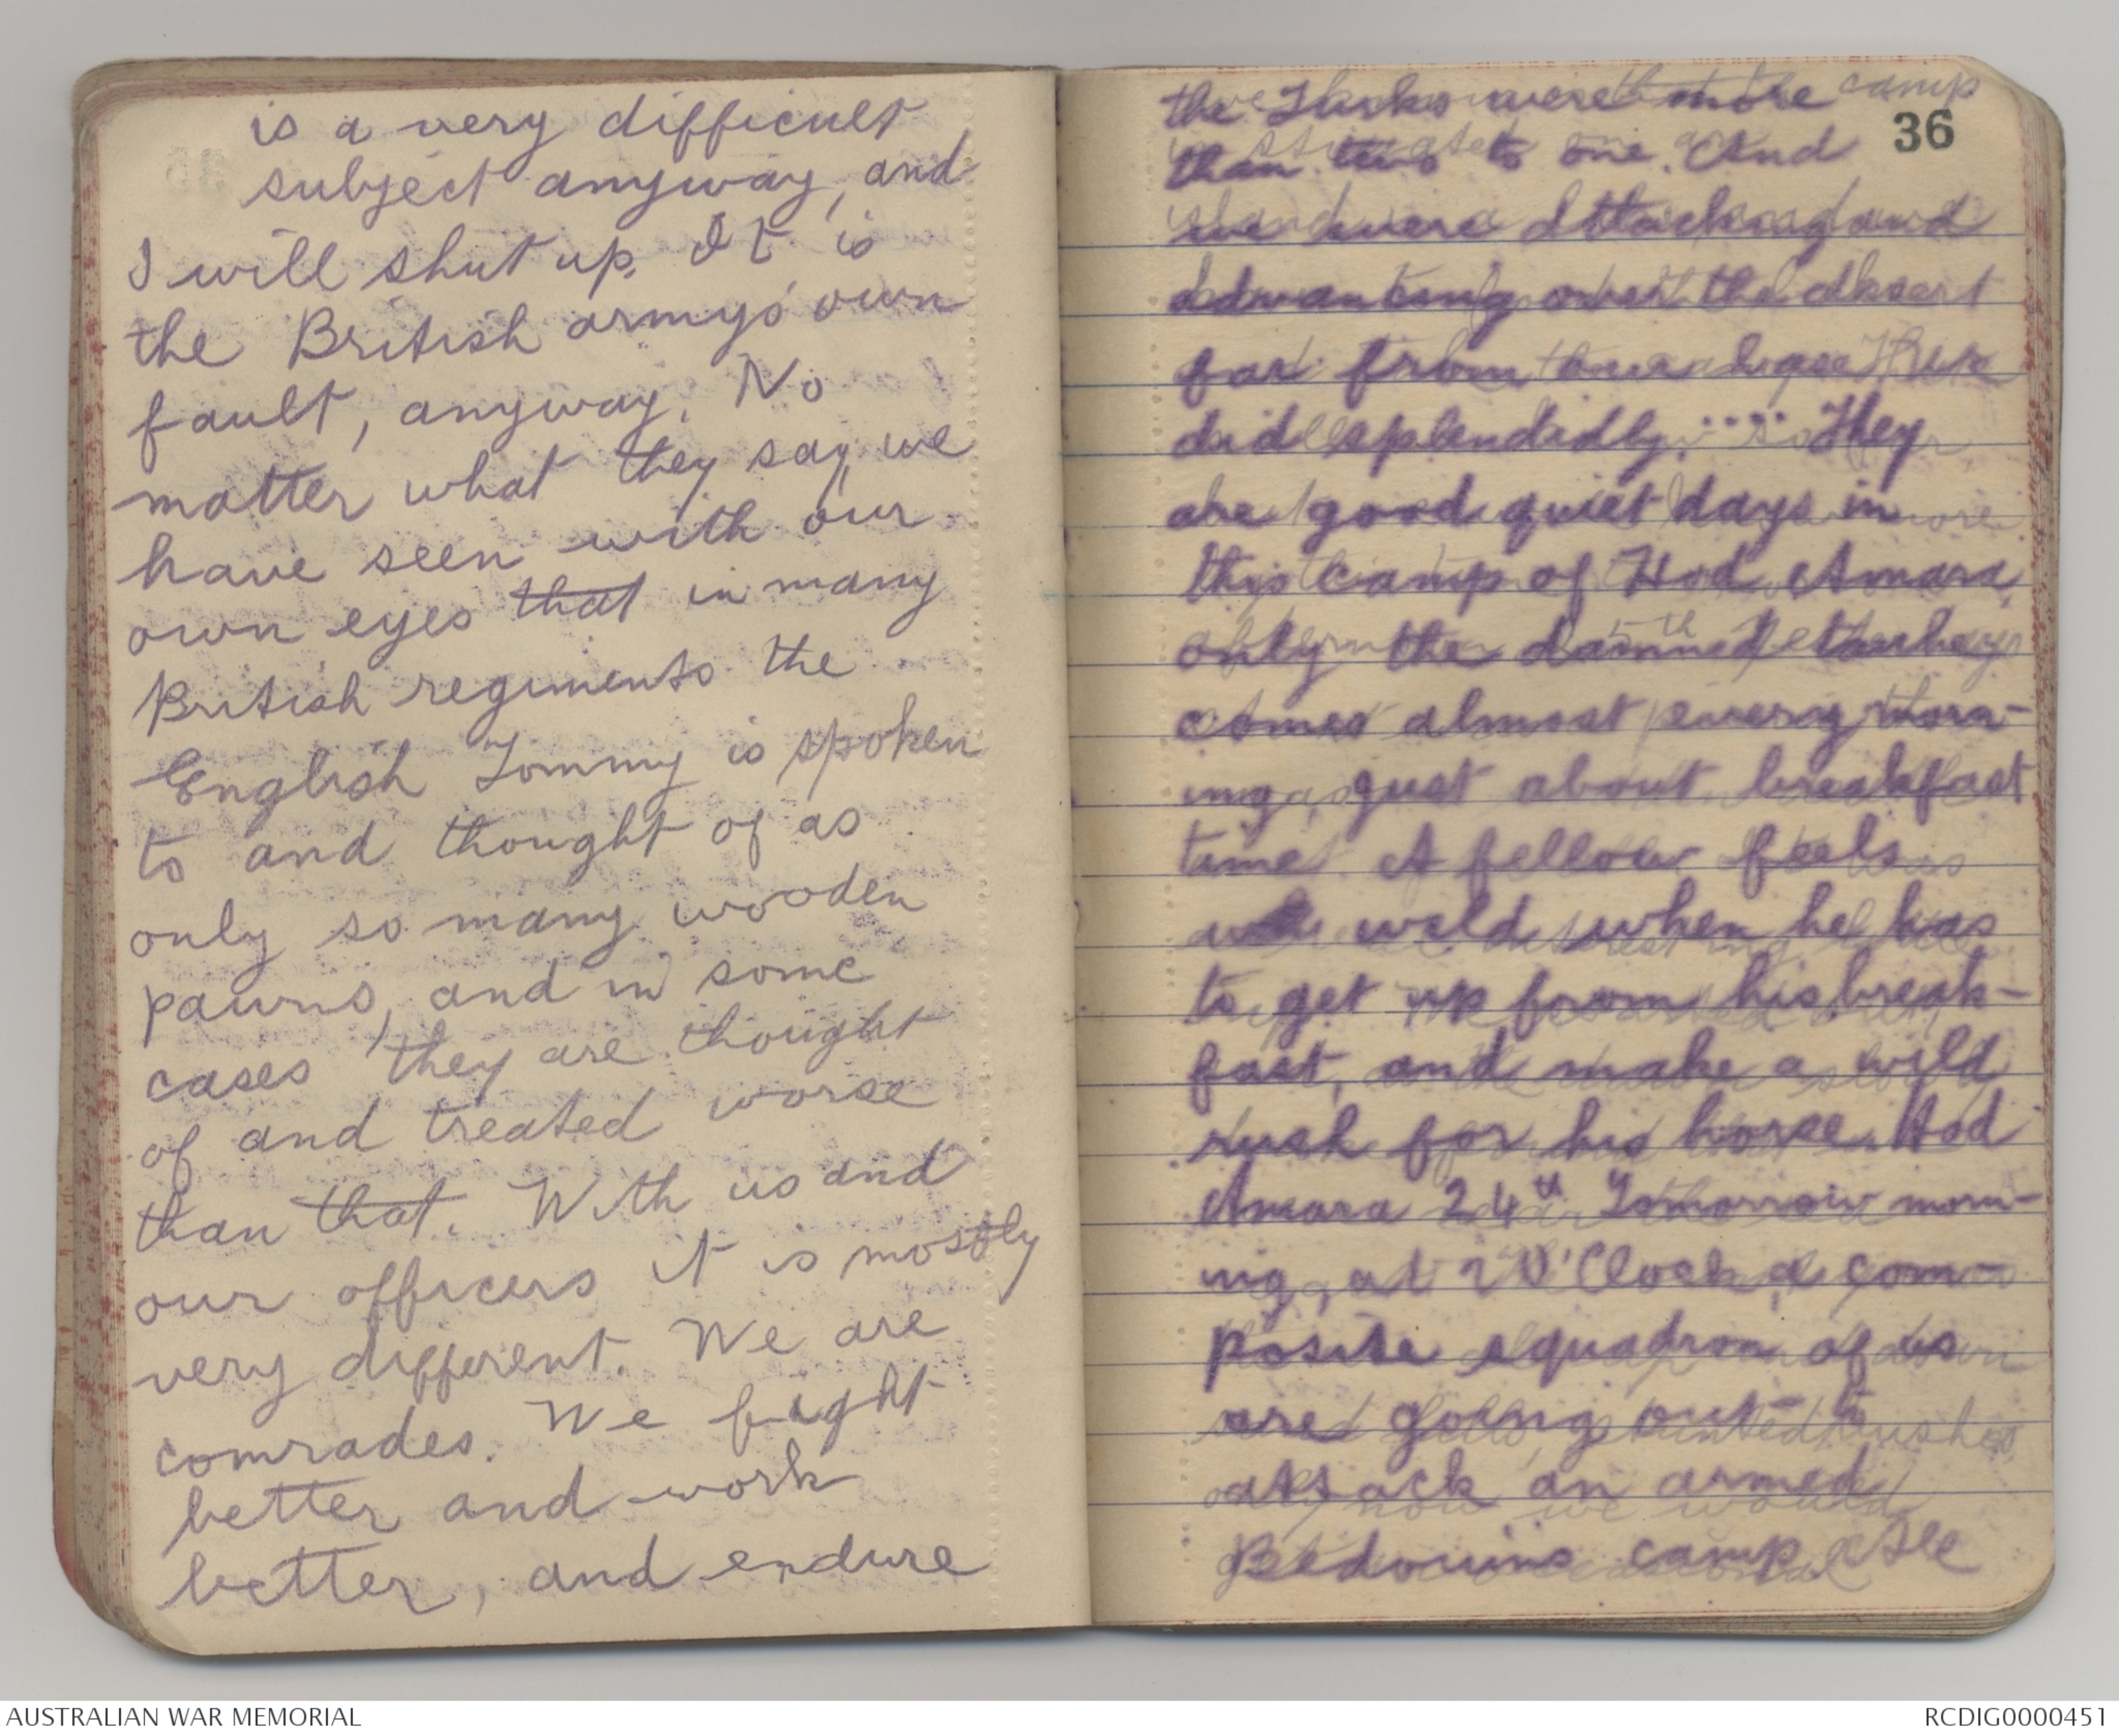 is a very difficult
subject anyway, and
I will shut up. It is
the British army's own
fault, anyway. No
matter what they say, we
have seen with our
own eyes that in many
British regiments the
English Tommy is spoken
to and thought of as
only so many wooden
pawns, and in some
cases they are thought
of and treated worse
than that. With us and
our officers it is mostly
very different. We are
comrades. We fight
better and work
better, and endure
36
the Turks were more
than two to one. And
we were attacking and
advancing over the desert
far from our base
did splendidly. .... They
are good quiet days in
this camp of Hod Amara,
only the damned
comes almost every morn-
ing, just about breakfast
time. A fellow feels
wild when he has
to get up from his break-
fast, and make a wild
rush for his horse. Hod
Amara 24th Tomorrow morn-
ing, at 2 O'Clock, a com-
posite squadron of us
are going out to
attack an armed
Bedouins camp. We
AUSTRALIAN WAR MEMORIAL
RCDIG0000451